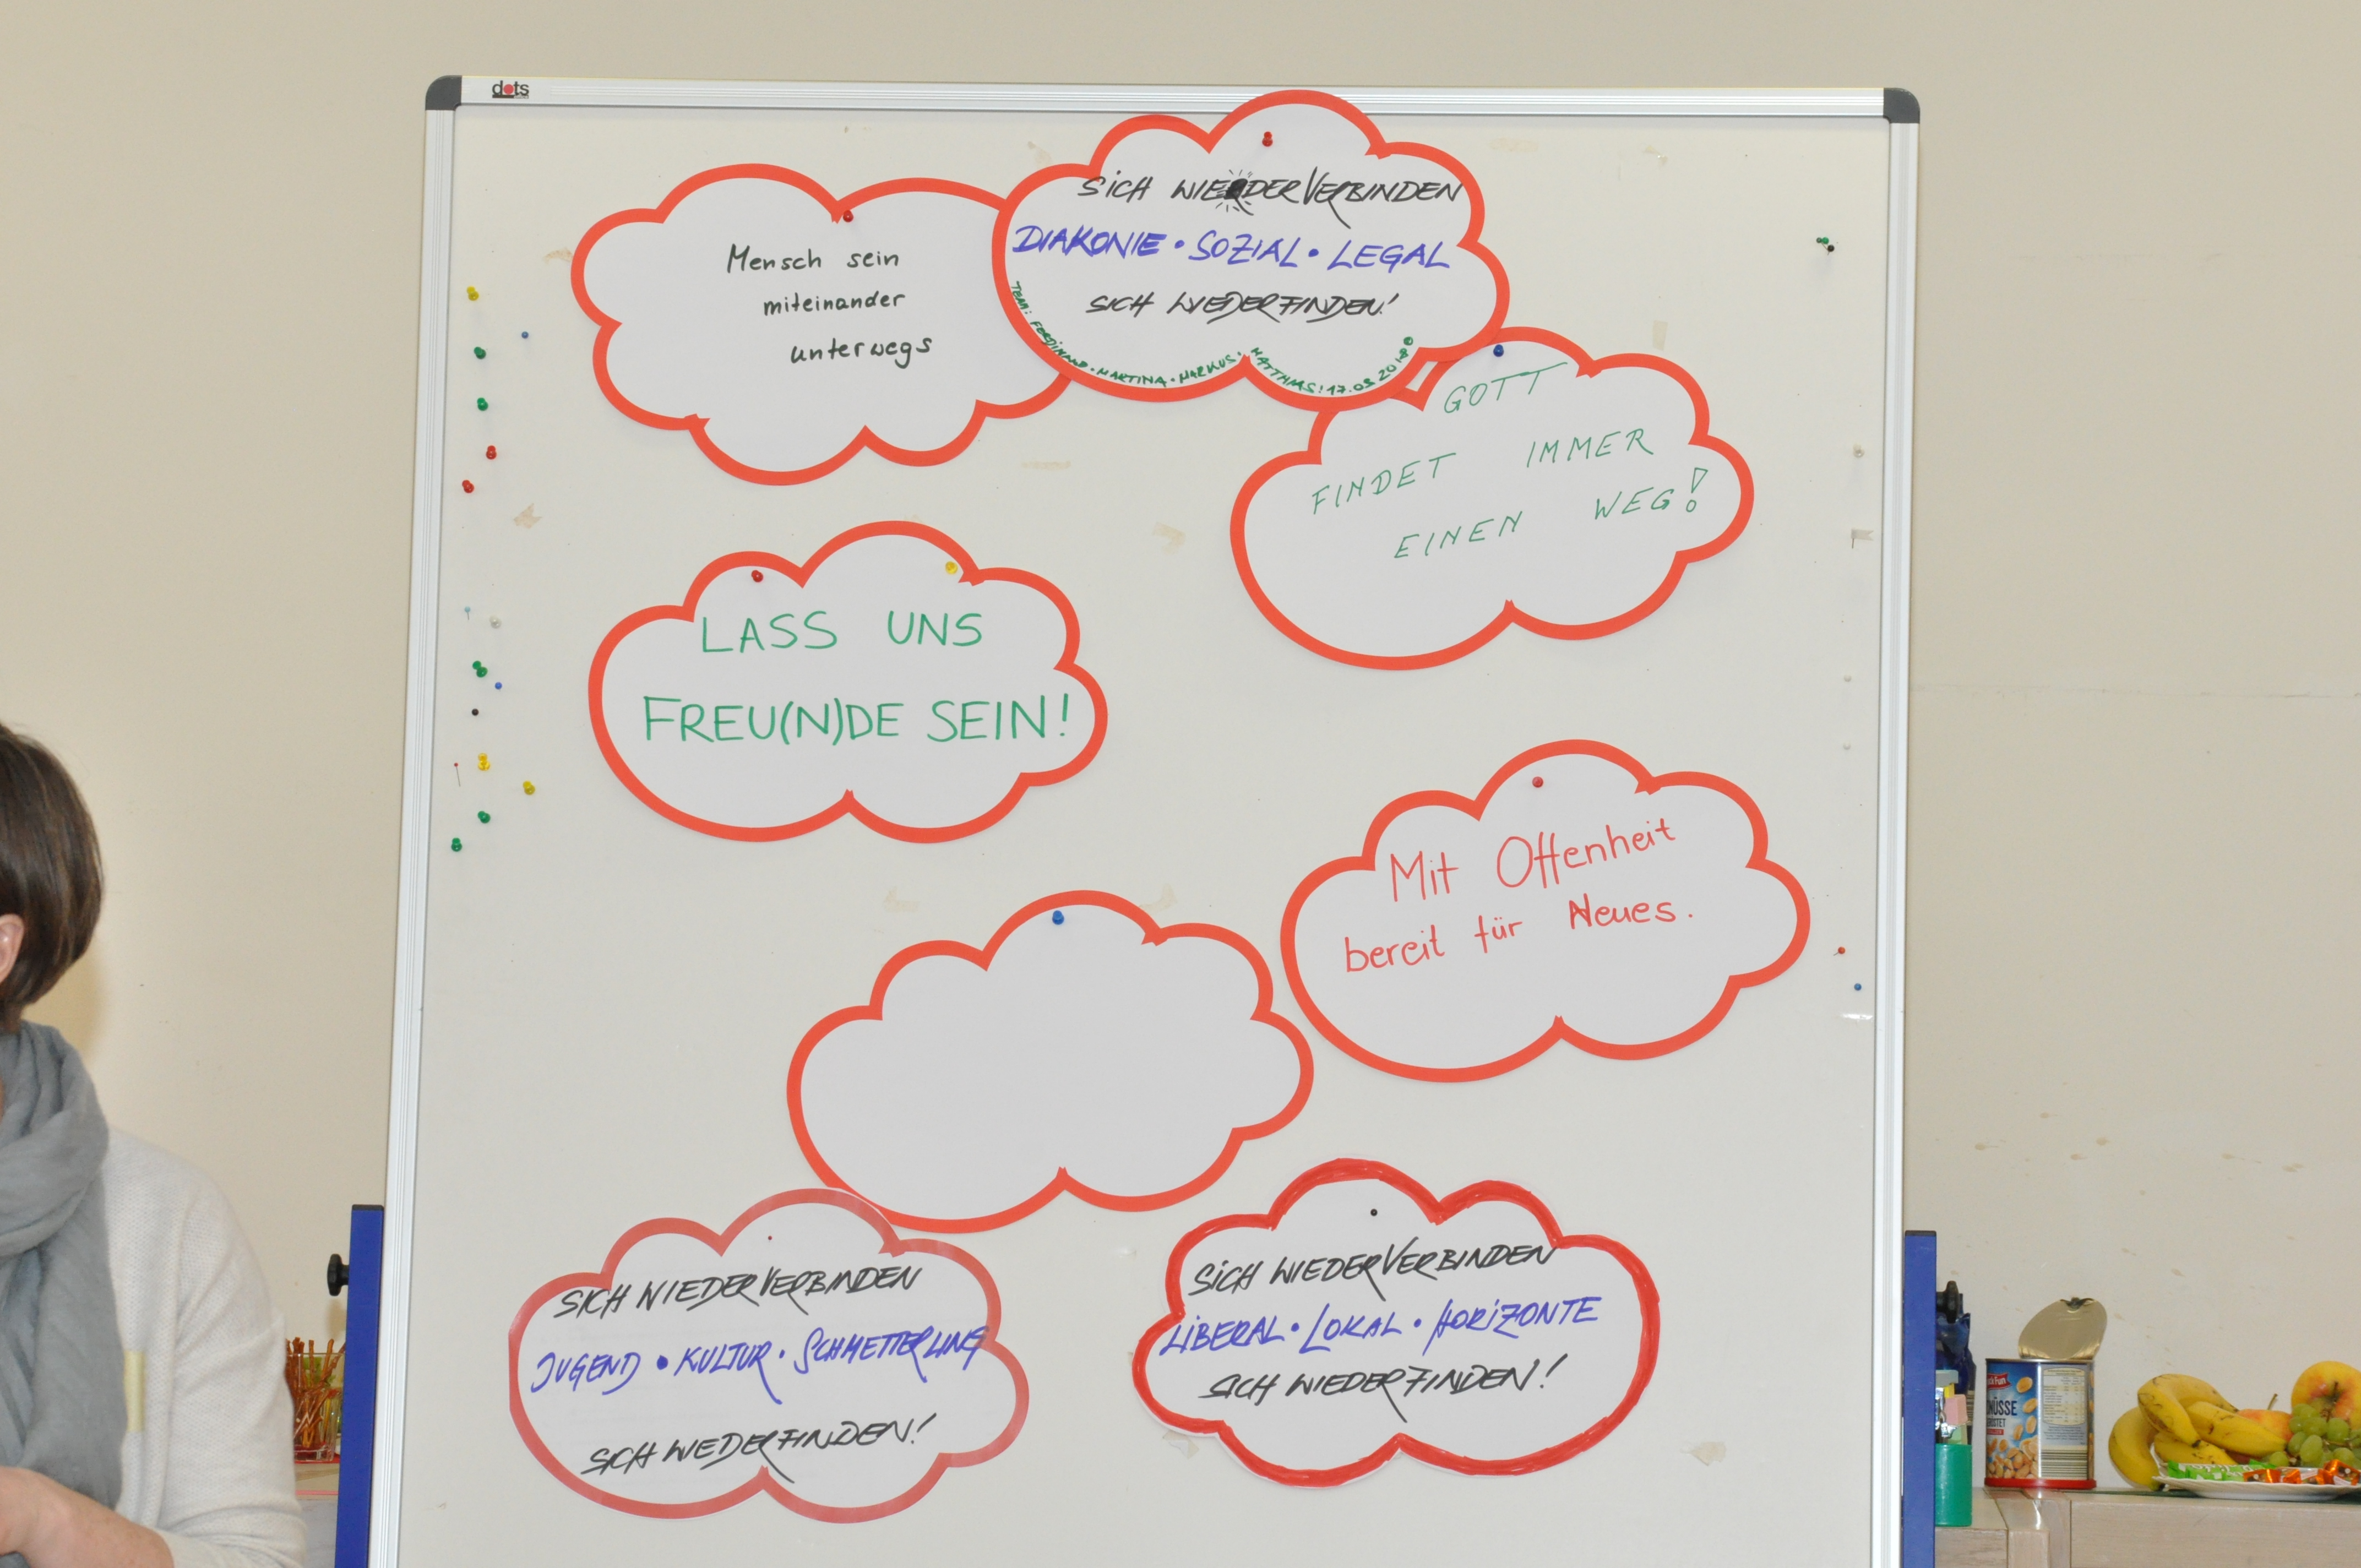 dots
SICH WIEDERVERBINDEN
DIAKONIE • SOZIAL • LEGAL
SICH WIEDERFINDEN!
TEAM: FERDINAND • MARTINA • MARKUS • MATTHIAS! 17.03.2018
Mensch sein
miteinander
unterwegs
GOTT
FINDET IMMER
EINEN WEG!
LASS UNS
FREU(N)DE SEIN!
Mit Offenheit
bereit für Neues.
SICH WIEDERVERBINDEN
JUGEND • KULTUR • SCHMETTERLING
SICH WIEDERFINDEN!
SICH WIEDERVERBINDEN
LIBERAL • LOKAL • HORIZONTE
SICH WIEDERFINDEN!